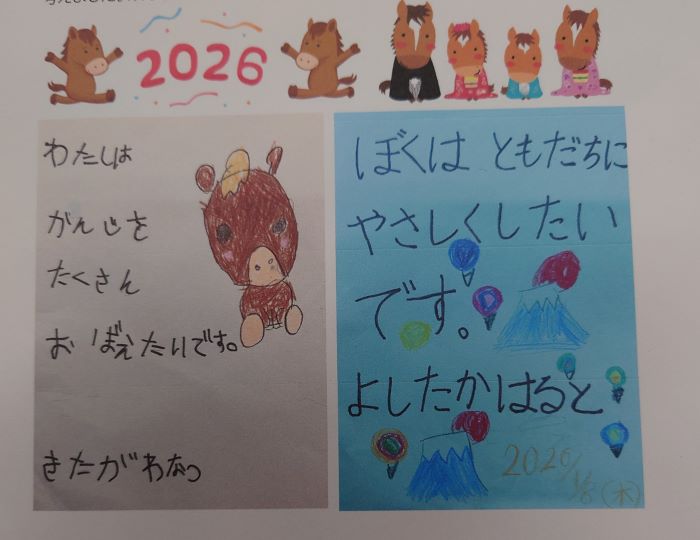 2026
わたしは
がんじを
たくさん
おぼえたいです。
きたがわなつ
ぼくは ともだちに
やさしくしたい
です。
よしたかはると
2026/1/8(木)